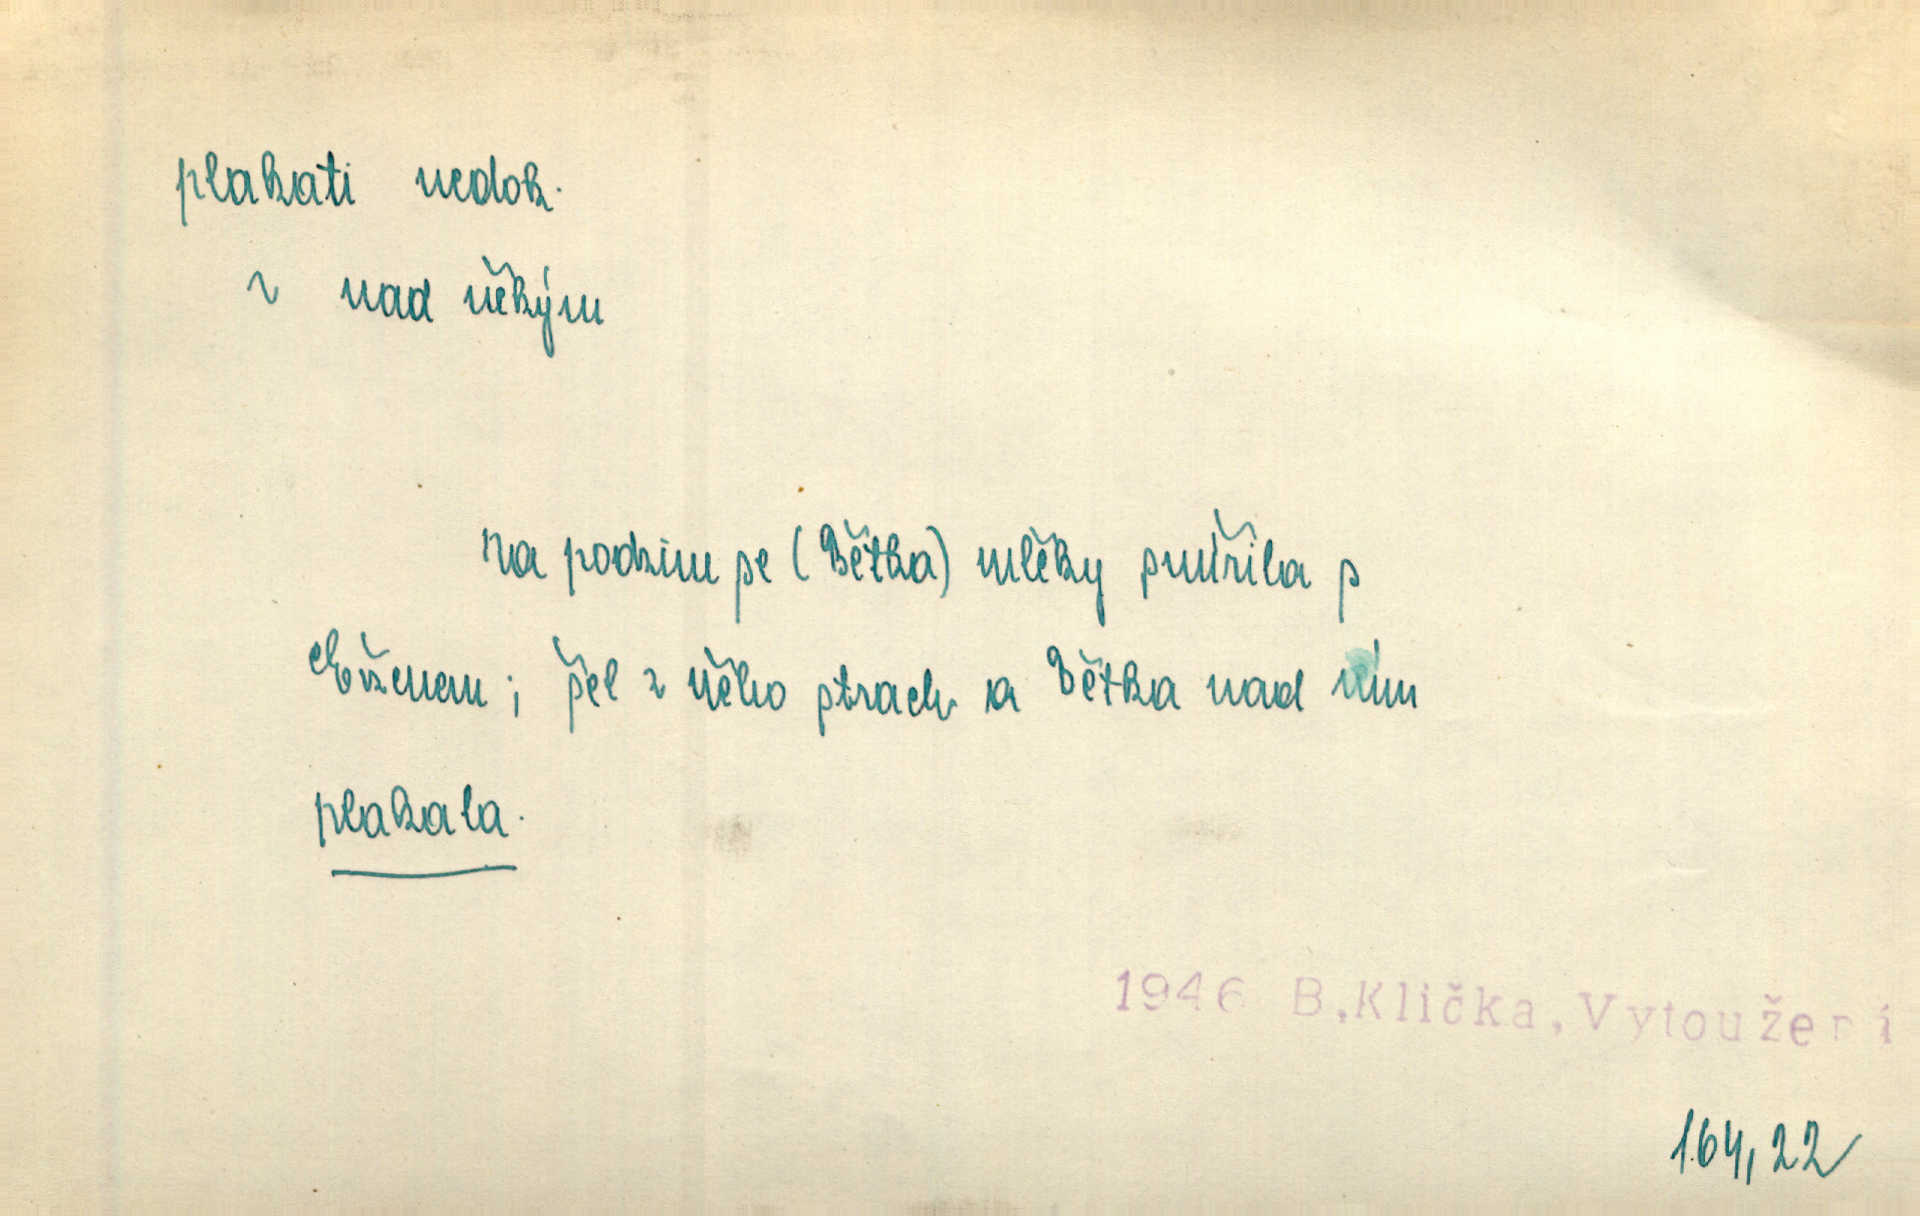 plakati nedok.
~ nad někým
Na podzim se (Bětka) mlčky smířila s
Evženem; šel z něho strach a Bětka nad ním
plakala.
1946 B.Klička,Vytoužení
164,22